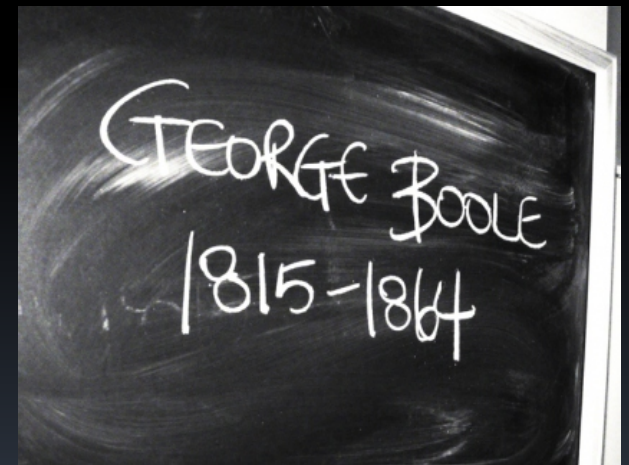 GEORGE BOOLE
1815-1864